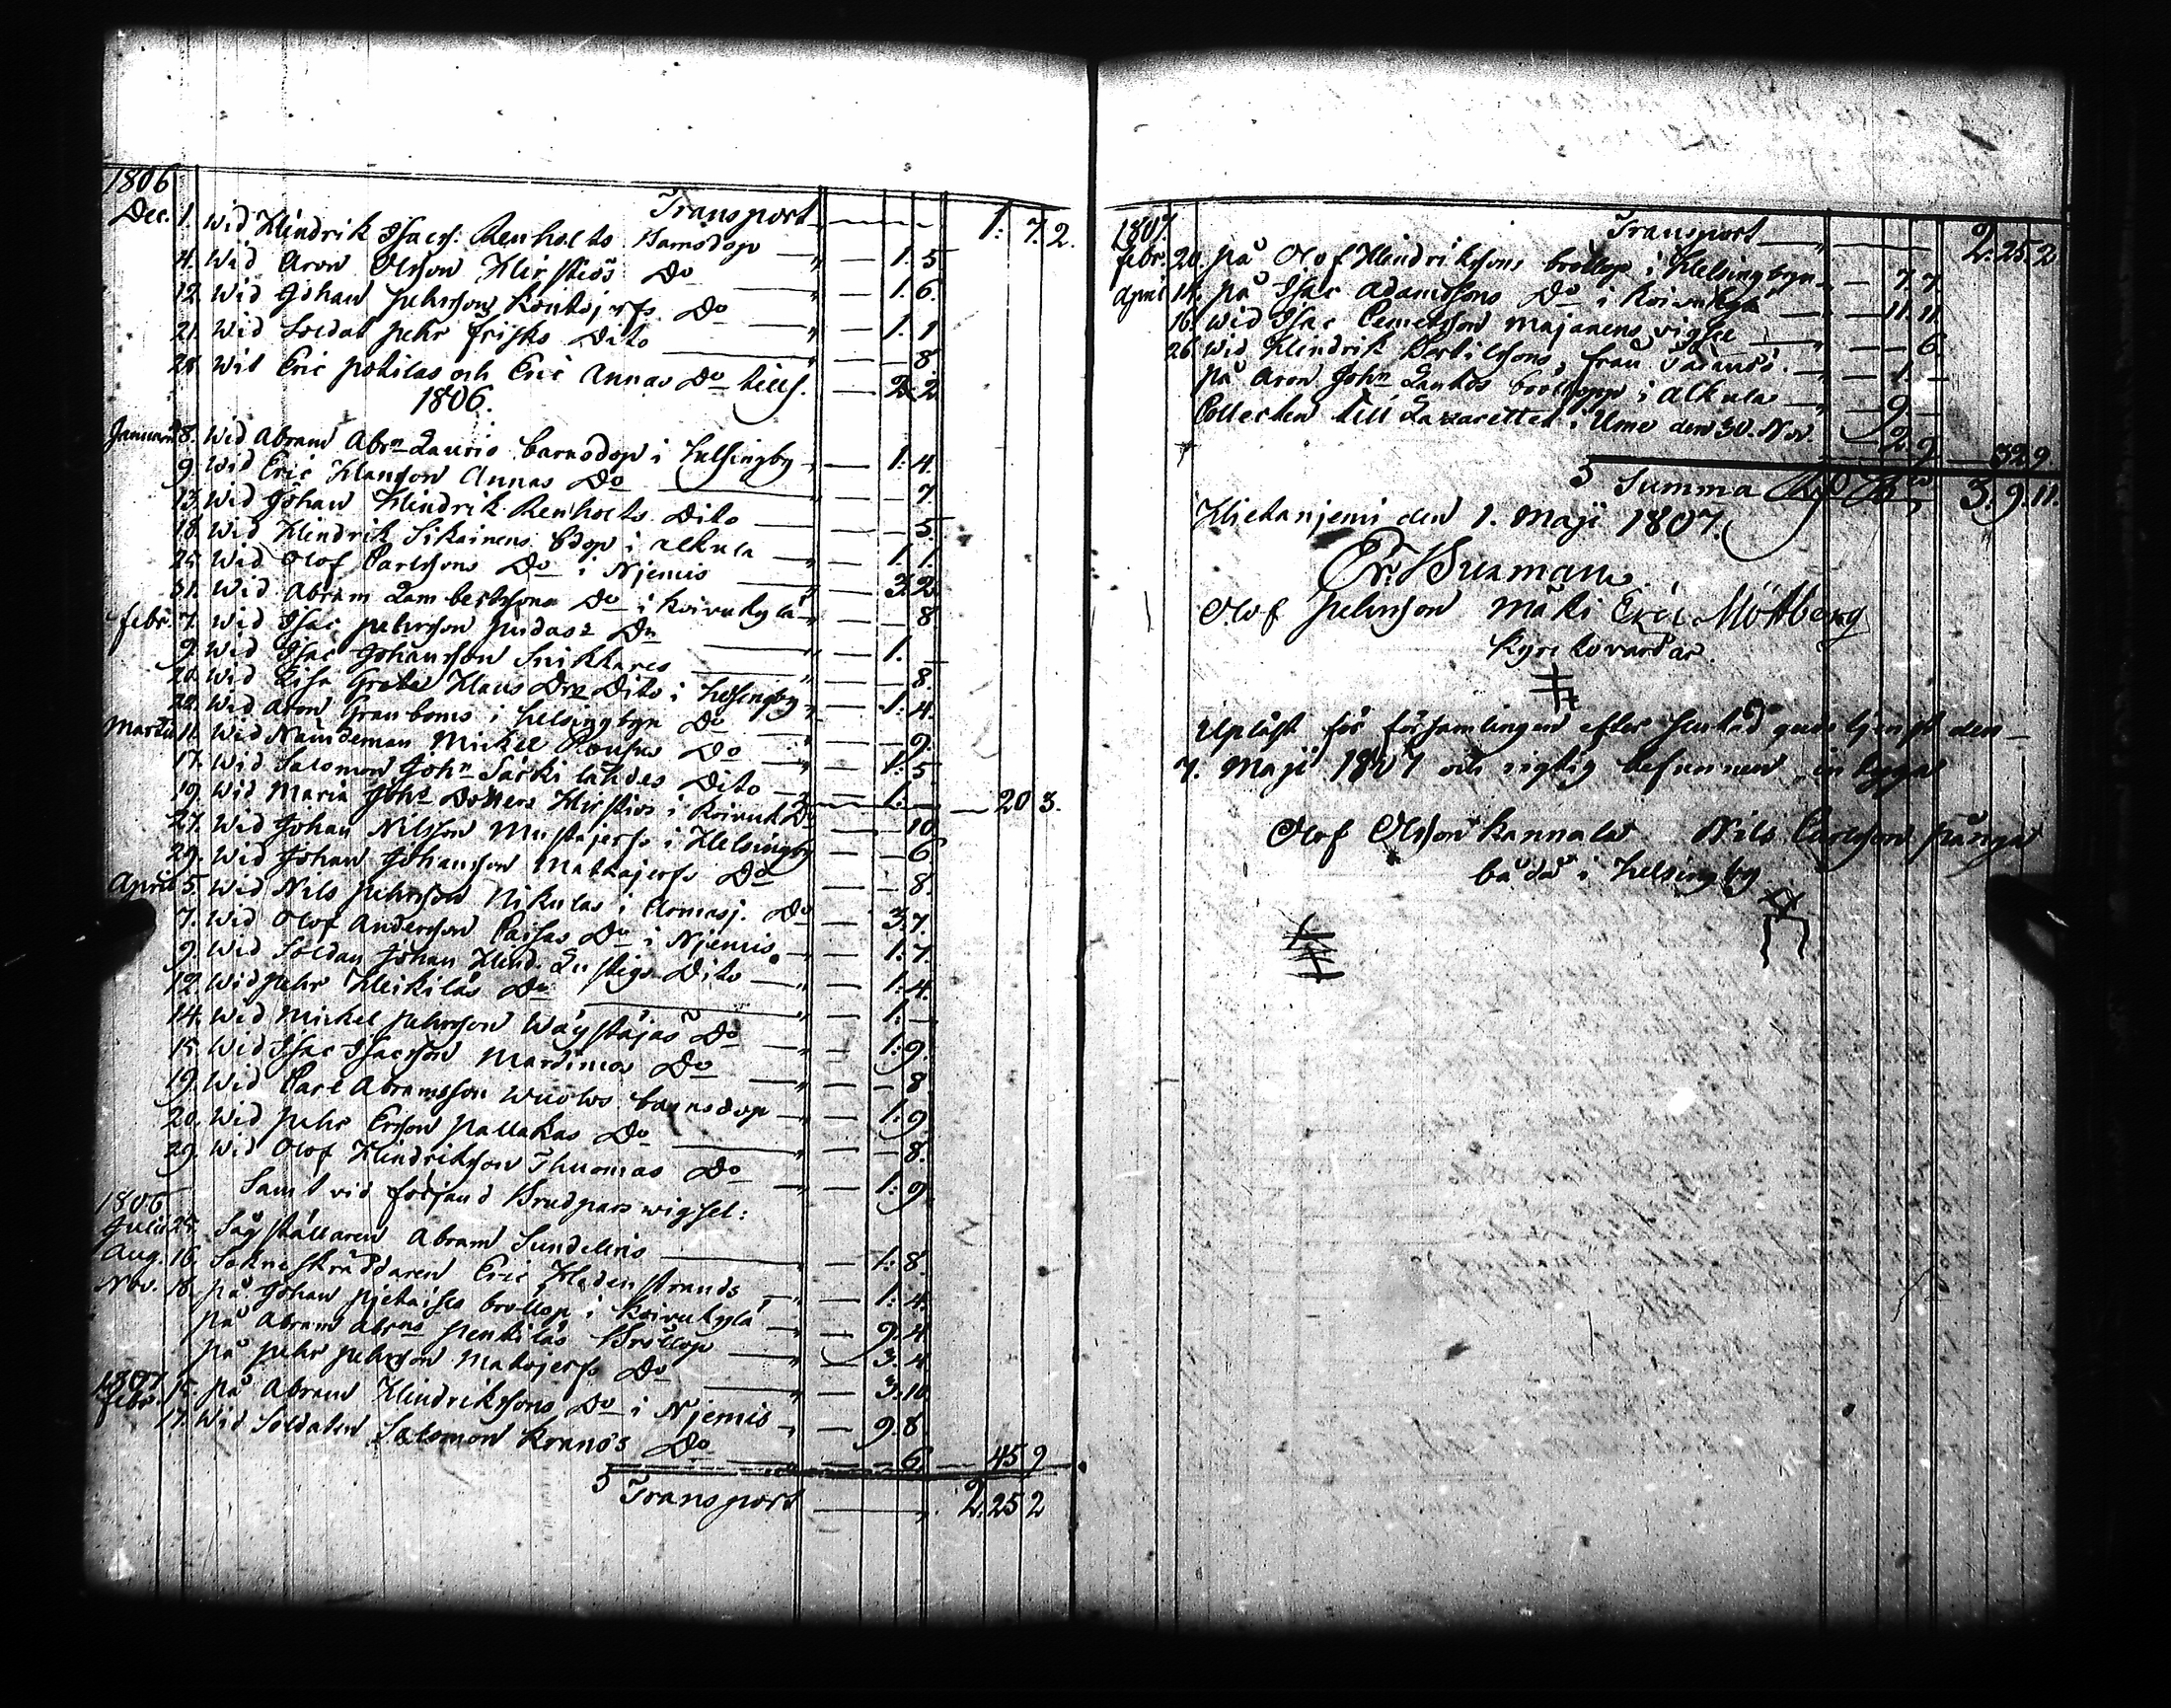 1806
Transport 1. 7. 2.
Dec. 1. Wid Hindrik Isacs. Renholts Barnsdop 1. 5
4. Wid Aron Olsson Hirstiös Do 1. 6.
12. Wid Johan Pehrsson Kontojerfs Do 1. 1
21. Wid Soldat Pehr Frisks Dito 8.
28. Wid Eric Pohilas och Eric Annas Do tills. 2. 2
1806.
Januarii 8. Wid Abram Abrn Lauris barnsdop i Helsingby 1. 4.
9. Wid Eric Hansson Annas Do 7
13. Wid Johan Hindrik Renholts Dito 5.
18. Wid Hindrik Sikainens Bdop i Alkula 1. 1.
25. Wid Olof Carlssons Do i Njemis 3. 2.
31. Wid Abram Lambertssons Do i Koivukylä 8
febr. 7. Wid Isac Pehrsson Judas Do 1. –
9. Wid Isac Johansson Snikkares 8.
20. Wid Lisa Greta Klaus Drs Dito i Helsingby 1. 4.
22. Wid Aron Granboms i Helsingbyn Do 9.
Martii 11. Wid Nämdeman Mickel Do 1. 5
17. Wid Salomon John Särkilahdes Dito 1. –
19. Wid Maria Johs Dotters Hirstiös i Koivuk Do 10 20 3.
27. Wid Johan Nilsson Mustajerfs i Helsingby 6
29. Wid Johan Johansson Matkajerfs Do 8.
April 5. Wid Nils Pehrsson Nikulas i Armasj. Do 3. 7.
7. Wid Olof Andersson Paisas Do i Njemis 1. 7.
9. Wid Soldaten Johan Hind. Lustigs Dito 1. 4.
12. Wid Pehr Heikiläs Do 1. –
14. Wid Mickel Pehrsson Wäystäjas Do 1. 9.
15. Wid Isac Isacsson Mardimos Do 8
19. Wid Carl Abramsson Wuolos barnsdop 1. 9.
20. Wid Pehr Ersson Pallakas Do 8.
29. Wid Olof Hindriksson Thuomas Do 1. 9.
Samt vid följand Brudpars wigsel:
1806
Julii 25. Sågställaren Abram Sundelins 1. 8.
Aug. 16. Sokneskräddaren Eric Hedenstrands 1. 4.
Nov. 18. På Johan Pjetaises bröllop i Koivukylä 9. 4
På Abram Abrns Penkiläs Bröllop 3. 4
På Pehr Pehrsson Matojerfs Do 3. 10.
1807
febr. 15. På Abram Hindrikssons Do i Njemis 9. 8
17. Wid Soldaten Salomon Do 6. 45 9
Transport 2. 25 2
1807.
Transport 2. 25. 2
febr. 20. På Olof Hindrikssons bröllop i Helsingbyn 7. 7
April 14. på Isac Adamssons Do i Koivukylä 11. 11.
16. Wid Isac Majanens vigsel 6.
26. Wid Hindrik Bertilssons, från 1. –
På Aron John Lankos bröllopp i Alkula 9. –
Collecten till Lazarettet i Umo den 30. Nov. 2. 9 32 9
Summa 3. 9. 11.
Hietanjemi den 1. Maji 1807.
Er. Burman
Olof Pehrsson Mäki Eric Möttberg
Kyrckovärdar.
Upläst för församlingen efter slutad gudstjenst den
7. Maji 1807 och rigtig befunnen, intyga
Olof Olsson Kannala Nils Carlsson
båda i Helsingby